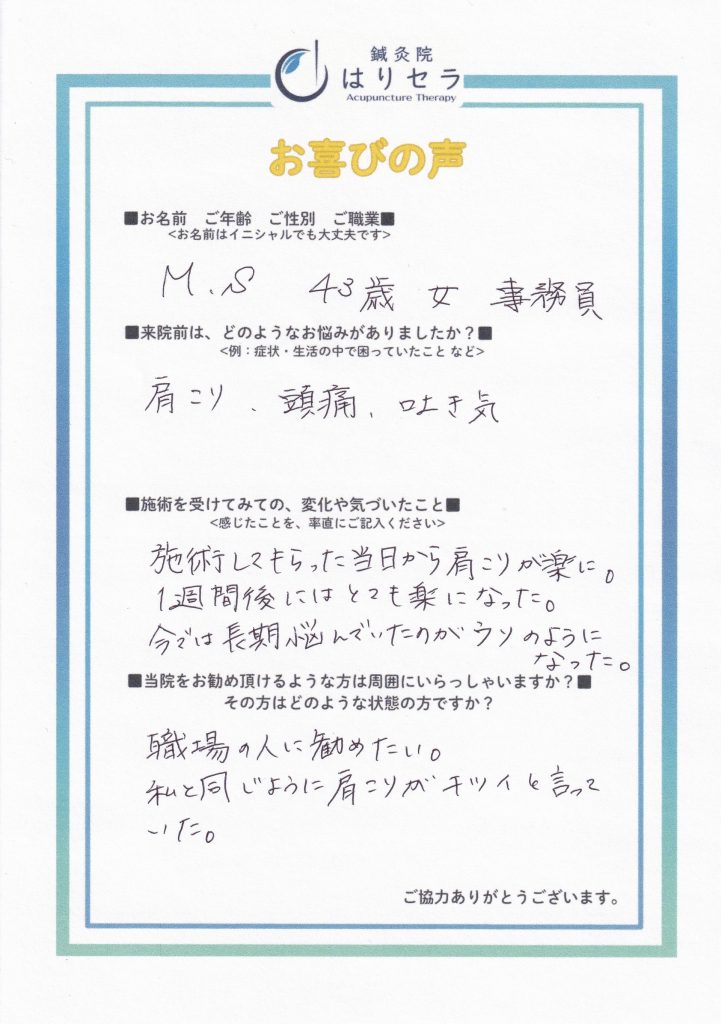 鍼灸院
はりセラ
Acupuncture Therapy
お喜びの声
■お名前　ご年齢　ご性別　ご職業■
<お名前はイニシャルでも大丈夫です>
M.S　43歳　女　事務員
■来院前は、どのようなお悩みがありましたか？■
<例：症状・生活の中で困っていたこと など>
肩こり、頭痛、吐き気
■施術を受けてみての、変化や気づいたこと■
<感じたことを、率直にご記入ください>
施術してもらった当日から肩こりが楽に。
1週間後にはとても楽になった。
今では長期悩んでいたのがウソのように
なった。
■当院をお勧め頂けるような方は周囲にいらっしゃいますか？■
その方はどのような状態の方ですか？
職場の人に勧めたい。
私と同じように肩こりがキツイと言って
いた。
ご協力ありがとうございます。